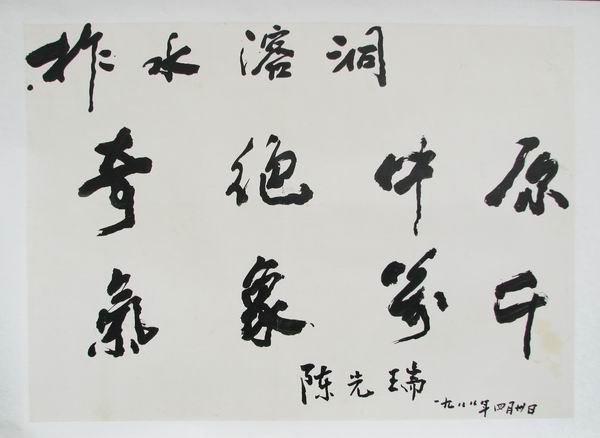 柞水溶洞
奇绝中原
氣象萬千
陈先瑞
一九八八年四月卅日